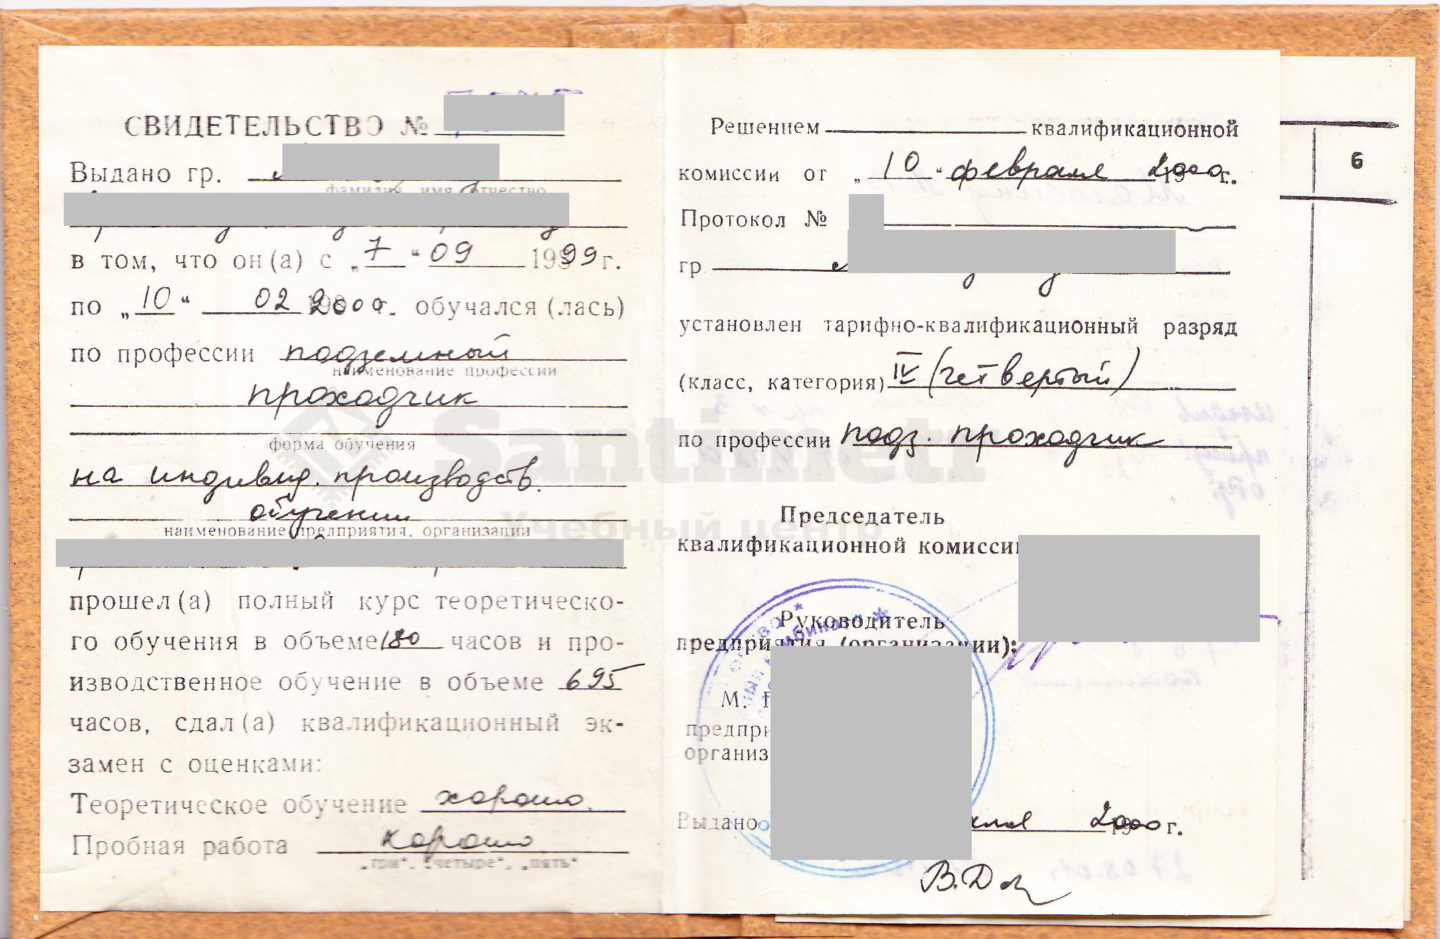 СВИДЕТЕЛЬСТВО №
Выдано гр.
фамилия, имя отчество
в том, что он(а) с „7“ 09 1999 г.
по „10“ 02 2000 г. обучался (лась)
по профессии подземный
наименование профессии
проходчик
форма обучения
на индивид. производств.
обучении
наименование предприятия, организации
прошел(а) полный курс теоретическо-
го обучения в объеме 180 часов и про-
изводственное обучение в объеме 695
часов, сдал(а) квалификационный эк-
замен с оценками:
Теоретическое обучение хорошо.
Пробная работа хорошо
„три“, „четыре“, „пять“
Решением квалификационной
комиссии от „10“ февраля 2000 г.
Протокол №
гр
установлен тарифно-квалификационный разряд
(класс, категория) IV (четвертый)
по профессии подз. проходчик
Председатель
квалификационной комиссии
Руководитель
предприятия (организации):
М.
предпри
организ
Выдано 2000 г.
6
Santimetr
Учебный центр